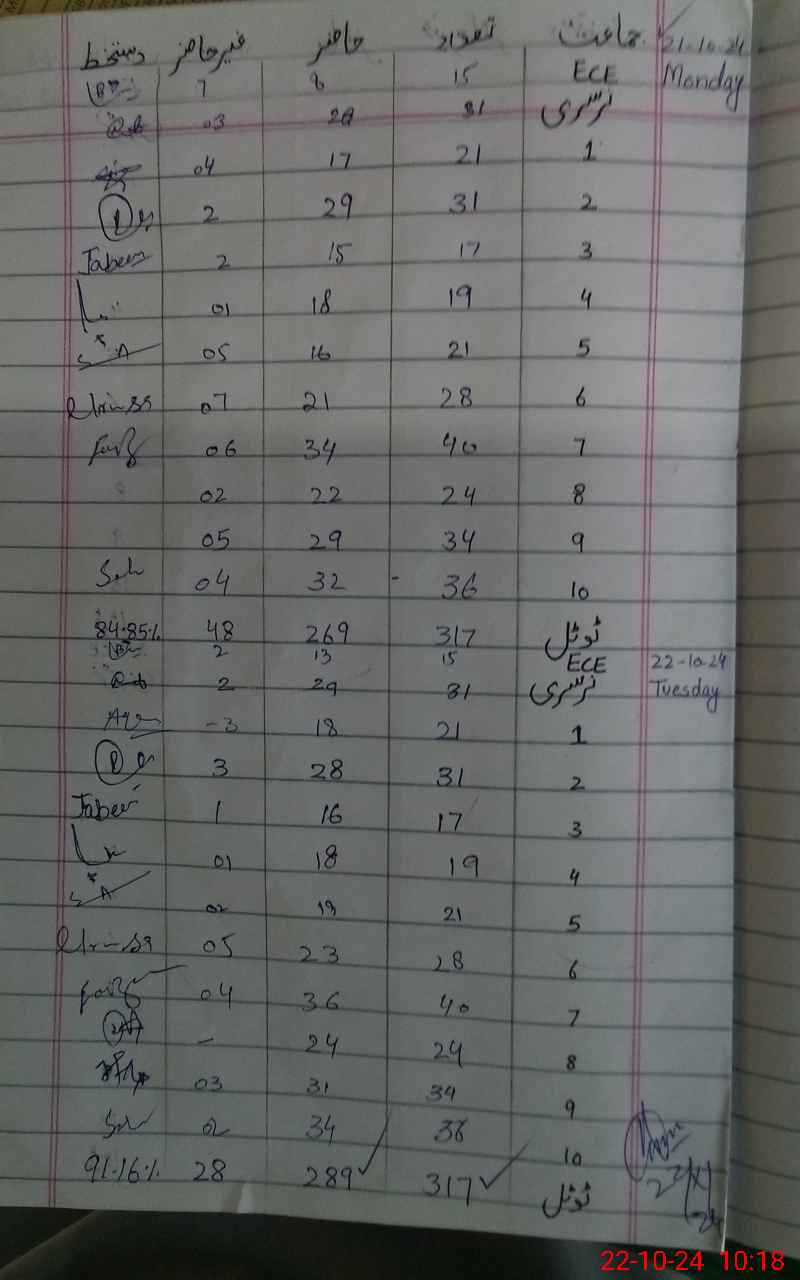 جماعت تعداد حاضر غیرحاضر دستخط
21-10-24 ECE 15 8 7
Monday نرسری 31 28 03
1 21 17 04
2 31 29 2
3 17 15 2 Jabeen
4 19 18 01
5 21 16 05
6 28 21 07
7 40 34 06
8 24 22 02
9 34 29 05
10 36 32 04
ٹوٹل 317 269 48 84.85%
22-10-24 ECE 15 13 2
Tuesday نرسری 31 29 2
1 21 18 -3
2 31 28 3
3 17 16 1 Jabeen
4 19 18 01
5 21 19 02
6 28 23 05
7 40 36 04
8 24 24 -
9 34 31 03
10 36 34 02
ٹوٹل 317 289 28 91.16%
22-10-24 10:18